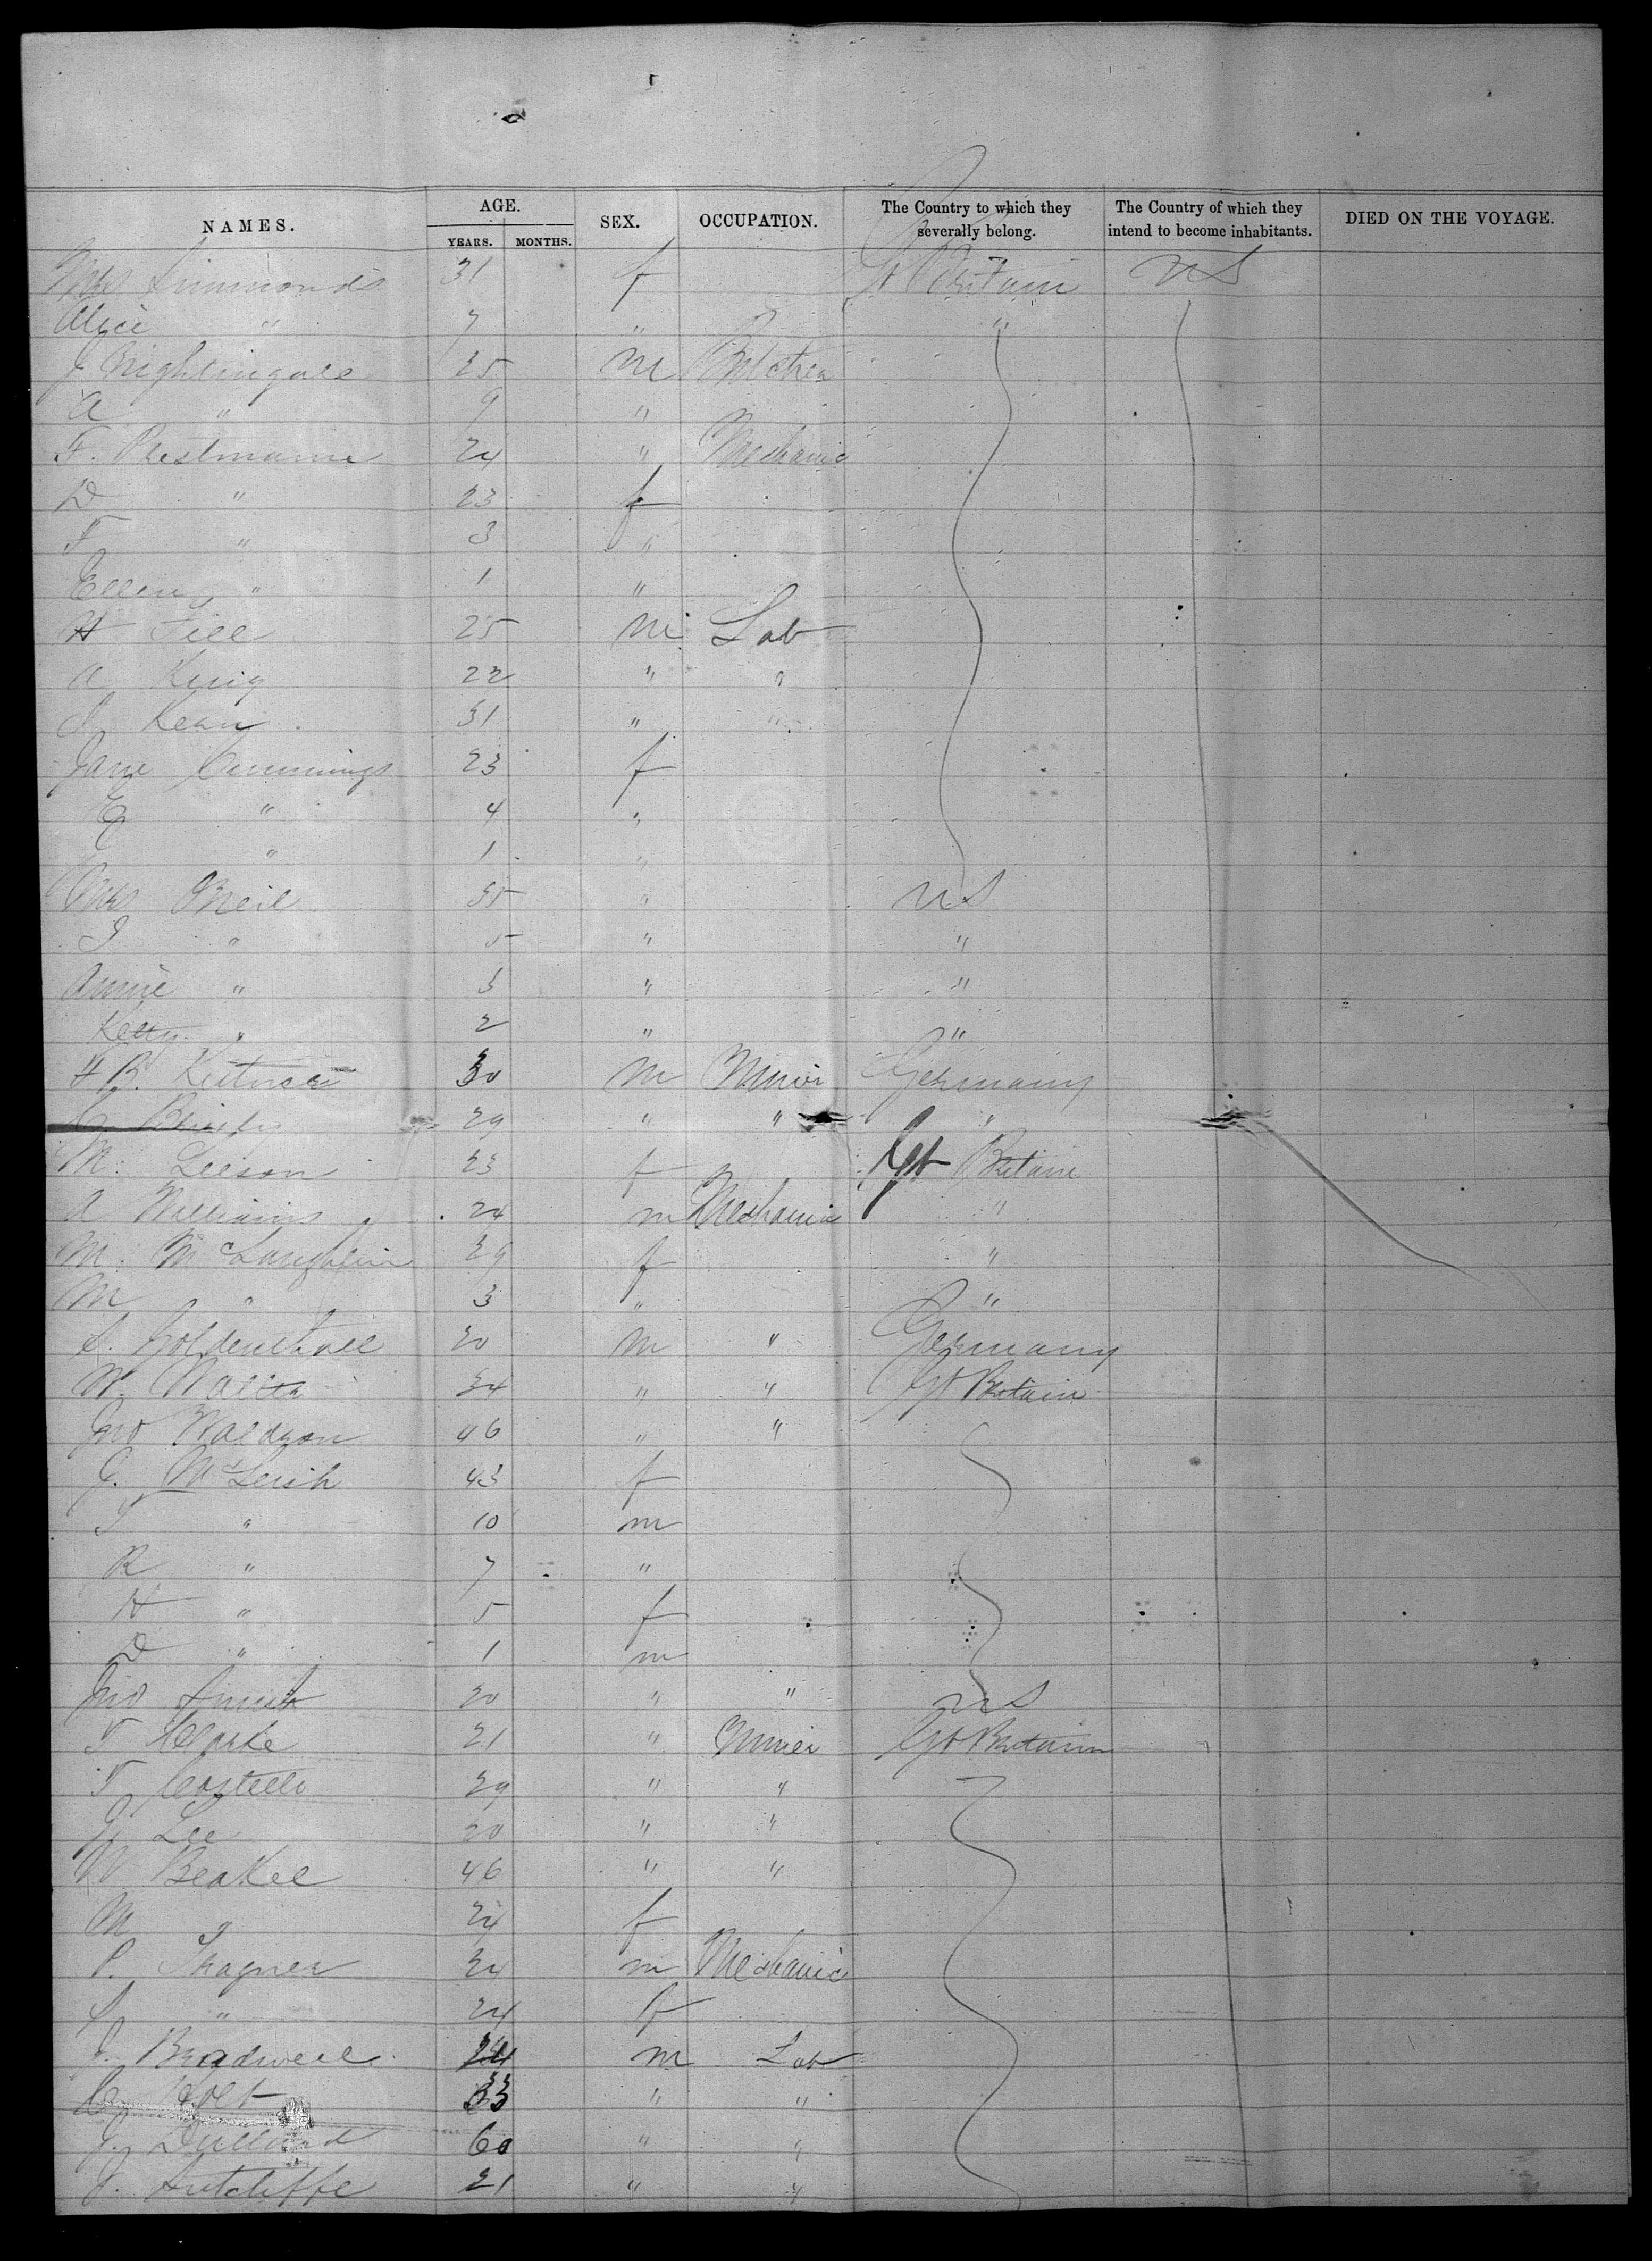 NAMES. AGE. YEARS. MONTHS. SEX. OCCUPATION. The Country to which they severally belong. The Country of which they intend to become inhabitants. DIED ON THE VOYAGE.
Mrs Simmonds 31 f Gt Britain US
Alice " 7 " "
J Nightingale 25 m Butcher
A " 9 "
F. Prestmann 24 " Mechanic
D " 23 f
F " 3 "
Ellen " 1 "
H Fill 25 m Lab
A King 22 " "
J Kean 31 " "
Jane Cummings 23 f
E " 4 "
" 1 "
Mrs ONeil 35 " US
J " 5 " "
Annie " 3 " "
Ketty " 2 " "
F B. 30 m Miner Germany
29 " " "
M. Leeson 23 f Gt Britain
A Williams 24 m Mechanic "
M. McLaughlin 29 f "
M " 3 " "
S. Goldenthall 20 m " Germany
W. Walter 34 " " Gt Britain
Jno Waldron 46 " "
J. McLeish 43 f
T " 10 m
R " 7 "
H " 5 f
D " 1 m
Jno Smith 20 " " US
T Clarke 21 " Miner Gt Britain
T Costello 29 " "
J Lee 20 " "
W Beakel 46 " "
M " 24 f
P. Thagner 34 m Mechanic
S " 24 f
J. Bradwell 24 m Lab
C. 33 " "
J. Dullard 60 " "
J. Sutcliffe 21 " "